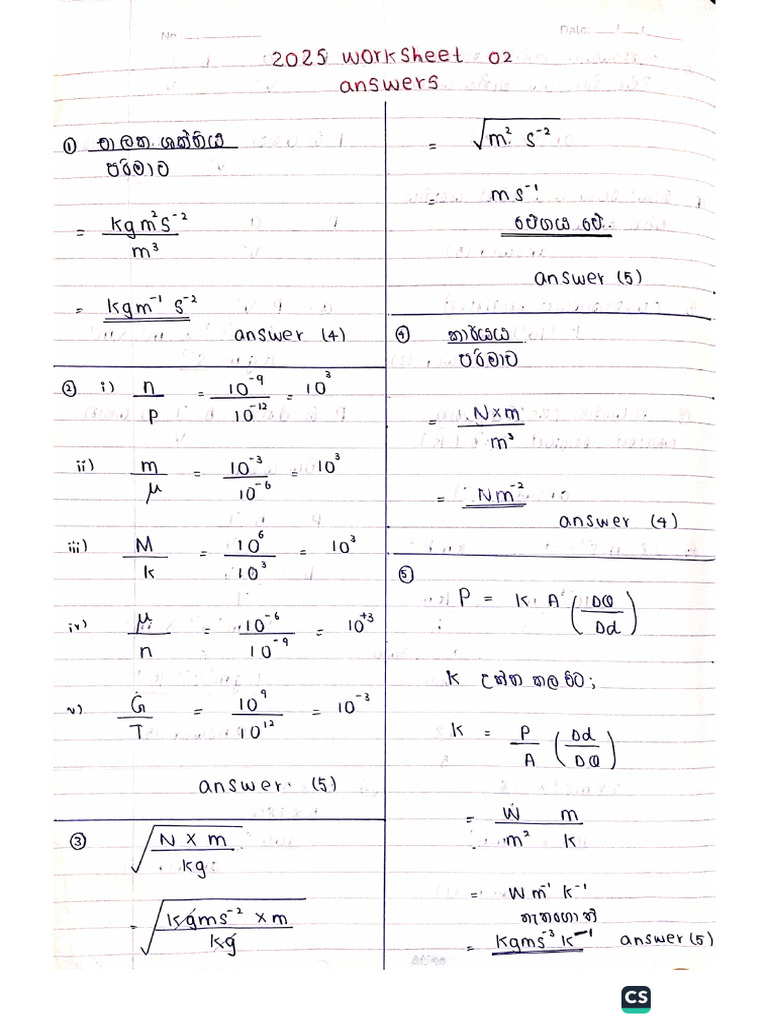 No
Date: / /
2025 worksheet 02
answers
① චාලක ශක්තිය
පරිමාව
= kgm²s⁻² / m³
= kgm⁻¹ s⁻²
answer (4)
② i) n / p = 10⁻⁹ / 10⁻¹² = 10³
ii) m / μ = 10⁻³ / 10⁻⁶ = 10³
iii) M / k = 10⁶ / 10³ = 10³
iv) μ / n = 10⁻⁶ / 10⁻⁹ = 10⁺³
v) G / T = 10⁹ / 10¹² = 10⁻³
answer. (5)
③ √(N × m / kg)
= √(kgms⁻² × m / kg)
= √(m² s⁻²)
= ms⁻¹
වේගය වේ.
answer (5)
④ කාර්යය
පරිමාව
= N×m / m³
= Nm⁻²
answer (4)
⑤
P = K A (DQ / Dd)
K උක්ත කල විට;
K = P / A (Dd / DQ)
= W / m² m / k
= Wm⁻¹ k⁻¹
නැතහොත්
= kgms⁻³ k⁻¹ answer (5)
Atlas
CS